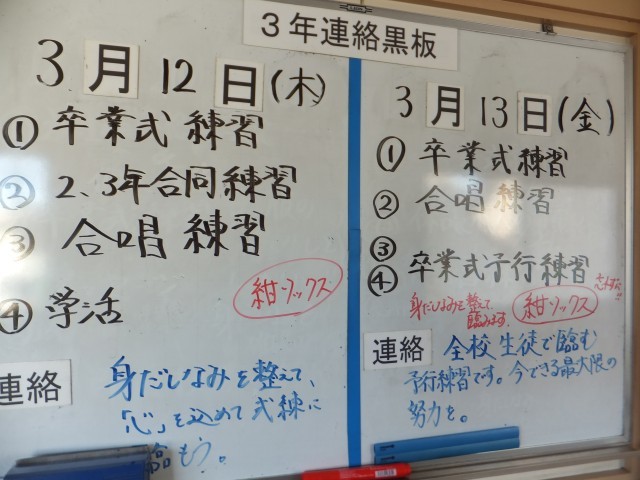 3年連絡黒板
3月12日(木)
① 卒業式 練習
② 2、3年合同練習
③ 合唱 練習
④ 学活
紺ソックス
連絡
身だしなみを整えて、
「心」を込めて式練に
臨もう。
3月13日(金)
① 卒業式練習
② 合唱 練習
③
④ 卒業式予行練習
身だしなみを整えて
臨みます。
紺ソックス
連絡
全校生徒で臨む
予行練習です。今できる最大限の
努力を。